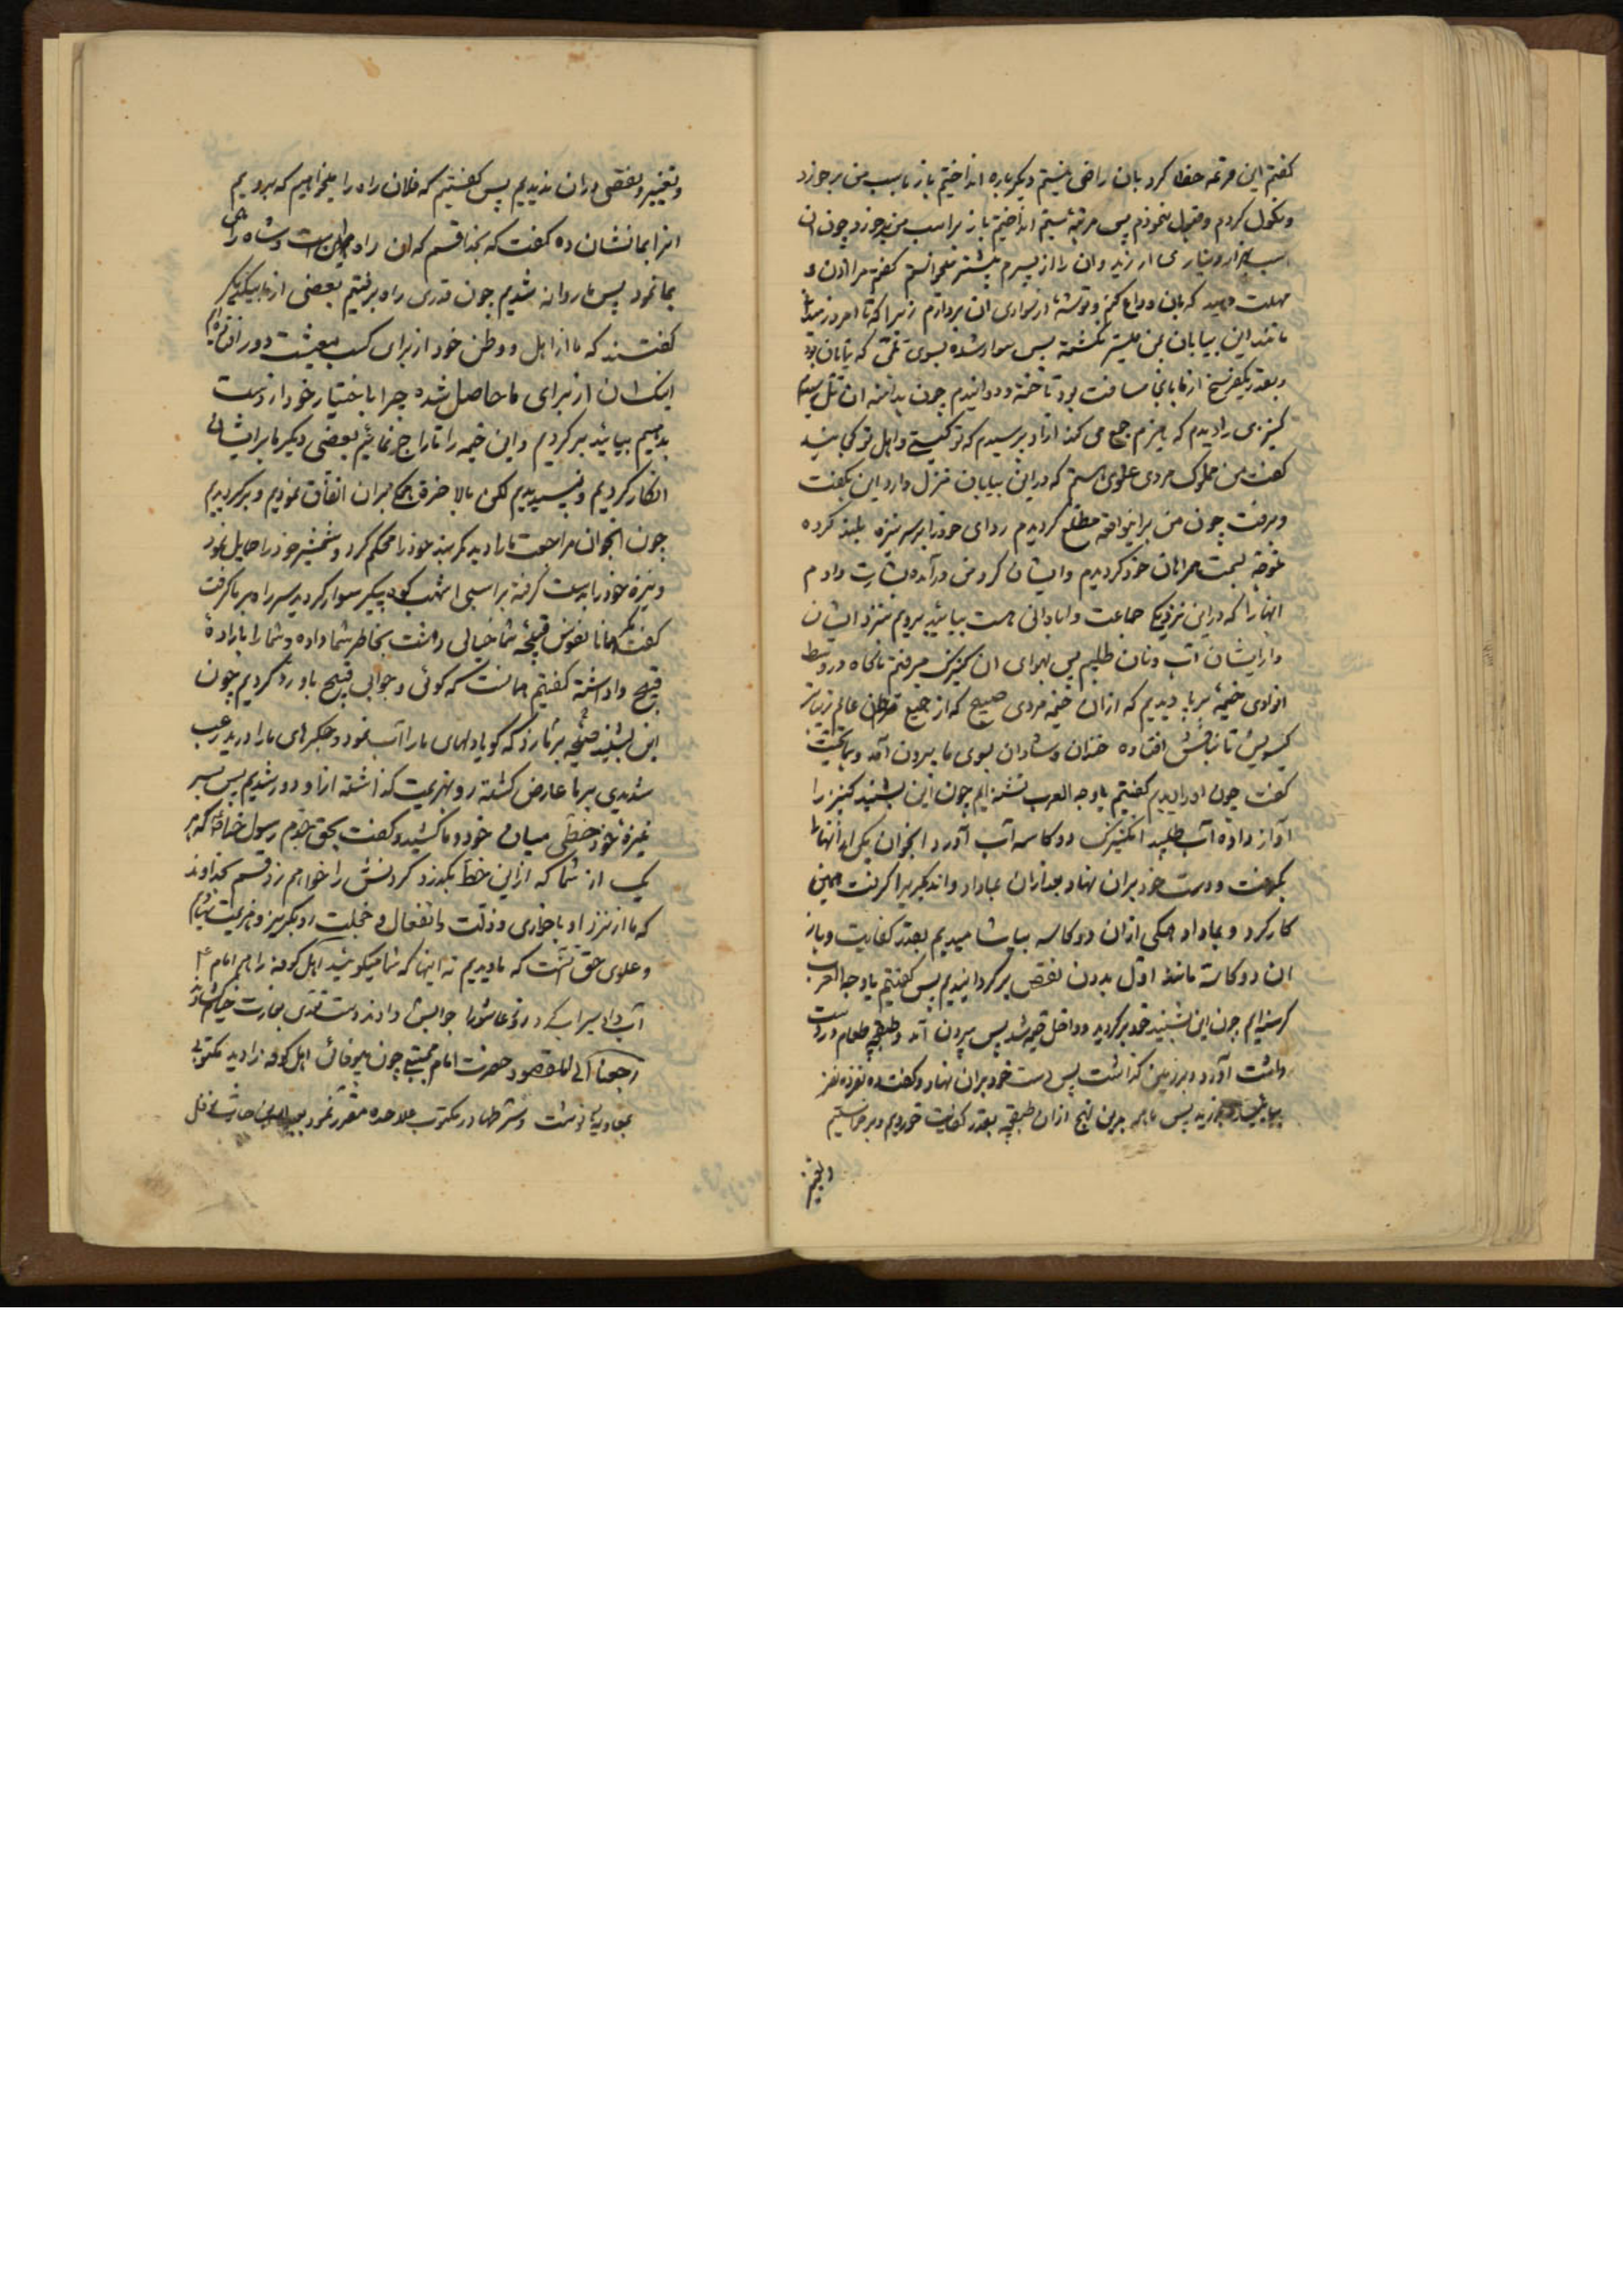 گفتم این قرعه خطا کرد بان راضی نیستم دیگرباره انداختیم باز باسب من برخورد
و نکول کردم و قبول ننمودم پس مرتبهٔ سیّم انداختیم باز براسب من برخورد چون آن
اسب بهزار دینار می ارزید و آن را از پسرم بیشتر میخواستم گفتم مرا اذن و
مهلت دهید که بان وداع کنم و توشهٔ از سواری آن بردارم زیرا که تا امروز میدانی
مانند این بیابان مرا میسّر نگشته پس سوار شده بسوی تلّی که نمایان بود
و بقدر یکفرسخ از ما بانجا مسافت بود تاخته و دوانیدم چون بدامنه آن تل رسیدم
کنیزی را دیدم که هیزم جمع می کند از او پرسیدم که تو کیستی و اهل تو کجایند
گفت من مملوک مردی علوی هستم که در این بیابان منزل دارد این بگفت
و برفت چون من براینواقعه مطلع گردیدم ردای خود را بر سر نیزه بلند کرده
متوجه بسمت همراهان خود گردیدم و ایشان گردمن درآمده بشارت دادم
آنها را که در این نزدیکی جماعت و آبادانی هست بیائید برویم بنزد ایشان
و از ایشان آب و نان طلبیم پس بهوای آن کنیزک میرفتیم ناگاه در وسط
آنوادی خیمهٔ برپا دیدیم که از آن خیمه مردی صبیح که از جمیع مردمان عالم زیباتر
گیسویش تا بنافش افتاده خندان و شادان بسوی ما بیرون آمد و بما تحیّت
گفت چون او را دیدیم گفتیم یا وجه العرب تشنه ایم چون این بشنید کنیز را
آواز داده آب طلبید آنکنیزک دو کاسه آب آورد آنجوان یکی از آنها را
بگرفت و دست خود بران نهاد بعد ازان بما داد و آندیگری را گرفت همین
کار کرد و بما داد همگی از آن دو کاسه بیاشامیدیم بقدر کفایت و باز
آن دو کاسه مانند اوّل بدون نقص برگردانیدیم پس گفتیم یا وجه العرب
گرسنه ایم چون این بشنید خود برگردید و داخل خیمه شد پس بیرون آمد و طبقچه طعام در دست
داشت آورد و بر زمین گذاشت پس دست خود بران نهاد و گفت ده نفر ده نفر
پس ما همه بدین نهج از آن طبقچه بقدر کفایت خوردیم و برخواستیم
و تغییر
و تغییر و نقصی دران ندیدیم پس گفتیم که فلان راه را میخواهیم که برویم
آنرا بما نشان ده گفت که بخدا قسم که آن راه شماست و شاه راهی
بما نمود پس ما روانه شدیم چون قدری راه برفتیم بعضی از ما بیکدیگر
گفتند که ما از اهل و وطن خود از برای کسب معیشت دور افتاده ایم
اینک آن از برای ما حاصل شده چرا باختیار خود از دست
بدهیم بیائید برگردیم و این خیمه را تاراج نمائیم بعضی دیگر ما بر ایشان
انکار کردیم و نپسندیدیم لکن بالاخره همگی بران اتفاق نمودیم و برگردیدیم
چون آنجوان مراجعت ما را دید کمربند خود را محکم کرد و شمشیر خود را حمایل نمود
و نیزه خود را بدست گرفته براسبی اشهب کوه پیکر سوار گردید سر راه بر ما گرفت
گفت همانا نفوس قبیحهٔ شما خیالی زشت بخاطر شما داده و شما را باراده
قبیح واداشته گفتیم همانست که گوئی و جوابی قبیح باو رد کردیم چون
این بشنید صیحهٔ بر ما زد که گویا دلهای ما را آب نمود و جگرهای ما را درید رعب
شدیدی بر ما عارض گشته رو بهزیمت گذاشته از او دور شدیم پس بسر
نیزهٔ خود خطّی میان خود و ما کشید و گفت بحق جدم رسول خدا که هر
یک از شما که ازین خط بگذرد گردنش را خواهم زد قسم بخداوند
که ما از نزد او با خواری و ذلّت و انفعال و خجلت رو بگریز و هزیمت نهادیم
و علوی حق آنست که ما دیدیم نه اینها که شما میگوئید اهل کوفه را هم امام ع
آب داد سیراب کرد روز عاشورا جوابش دادند دست تعدی بغارت خیامش
رجعنا الی المقصود حضرت امام مجتبی چون بیوفائی اهل کوفه را دید مکتوبی
بمعاویه نوشت و شرطها در مکتوب علاحده مقرر نمود